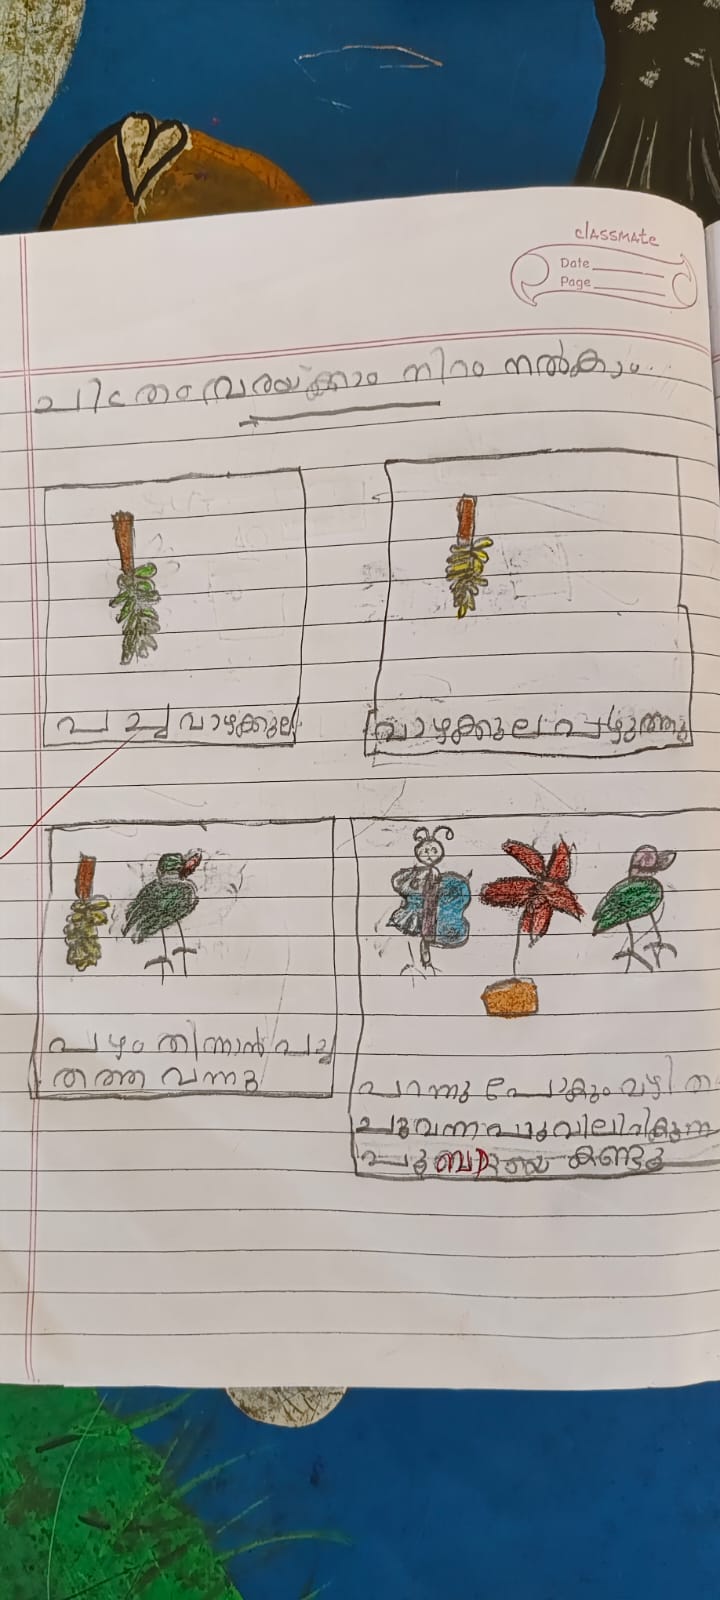 classmate
Date
Page
ചിത്രം വരയ്ക്കാം നിറം നൽകാം..
പച്ച വാഴക്കുല
വാഴക്കുല പഴുത്തു
പഴം തിന്നാൻ പച്ച
തത്ത വന്നു
പറന്നു പോകും വഴി ത
ചുവന്ന പൂവിലിരിക്കുന്ന
കണ്ടു